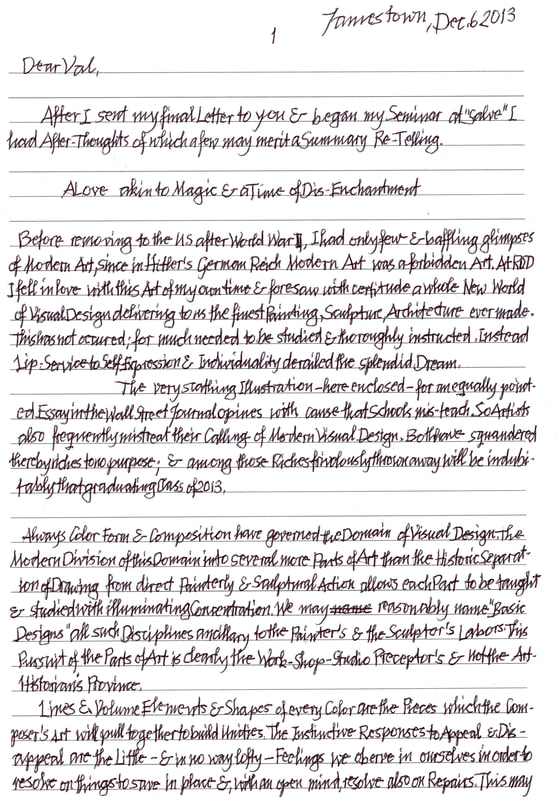 Jamestown, Dec. 6 2013
1
Dear Val,
After I sent my final Letter to you & began my Seminar at "Salve" I
had After-Thoughts of which a few may merit a Summary Re-Telling.
A Love akin to Magic & a Time of Dis-Enchantment
Before removing to the US after World War II, I had only few & baffling glimpses
of Modern Art, since in Hitler's German Reich Modern Art was a forbidden Art. At RISD
I fell in love with this Art of my own time & foresaw with certitude a whole New World
of Visual Design delivering to us the finest Painting, Sculpture, Architecture ever made.
This has not occured; for much needed to be studied & thoroughly instructed. Instead
Lip-Service to Self-Expression & Individuality derailed the splendid Dream.
The very scathing Illustration - here enclosed - for an equally point-
ed Essay in the Wall Street Journal opines with cause that Schools mis-teach. So Artists
also frequently mistreat their Calling of Modern Visual Design. Both have squandered
thereby riches to no purpose; & among those Riches frivolously thrown away will be indubi-
tably that graduating Class of 2013.
Always Color Form & Composition have governed the Domain of Visual Design. The
Modern Division of this Domain into several more Parts of Art than the Historic Separat-
ion of Drawing from direct Painterly & Sculptural Action allows each Part to be taught
& studied with illuminating Consentration. We may name reasonably name "Basic
Designs" all such Disciplines ancillary to the Painter's & the Sculptor's Labors. This
Pursuit of the Parts of Art is clearly the Work-Shop-Studio Preceptor's & not the Art-
Historian's Province.
Lines & Volume Elements & Shapes of every Color are the Pieces which the Com-
poser's Art will pull together to build Unities. The Instinctive Responses to Appeal & Dis-
appeal are the Little - & in no way lofty - Feelings we oberve in ourselves in order to
resolve on things to save in place &, with an open mind, resolve also on Repairs. This may